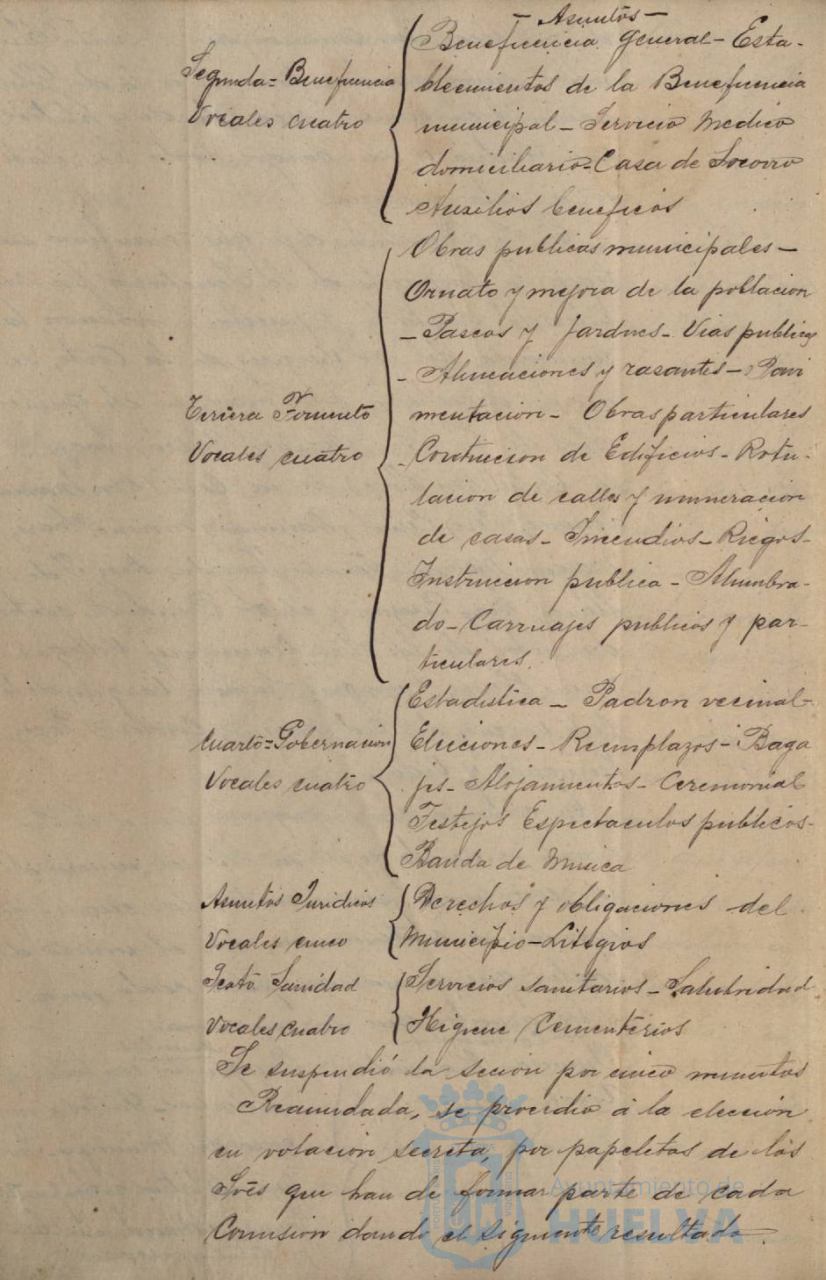 — Asuntos —
Segunda = Beneficencia
Vocales cuatro
Beneficencia general - Esta-
blecimientos de la Beneficencia
municipal - Servicio Medico
domiciliario - Casa de Socorro
Auxilios beneficos
Tercera Fomento
Vocales cuatro
Obras publicas municipales -
Ornato y mejora de la poblacion
- Paseos y Jardines - Vias publicas
- Alineaciones y rasantes - Pavi
mentacion - Obras particulares
- Contrucion de Edificios - Rotu-
lacion de calles y numeracion
de casas - Incendios - Riegos -
Instrucion publica - Alumbra-
do - Carruajes publicos y par-
ticulares.
Cuarto = Gobernacion
Vocales cuatro
Estadistica - Padron vecinal -
Elecciones - Reemplazos - Baga
jes - Alojamientos - Ceremonial
Festejos Espectaculos publicos -
Banda de Musica
Asuntos Juridicos
Vocales cinco
Derechos y obligaciones del
Municipio - Litigios
Sanidad
Vocales cuatro
Servicios sanitarios - Salubridad
Higiene Cementerios
Se suspendió la secion por cinco minutos
Reanudada, se procedio á la elección
en votacion secreta, por papeletas de los
Sres que han de formar parte de cada
Comision dando el siguiente resultado
Ayuntamiento de
HUELVA